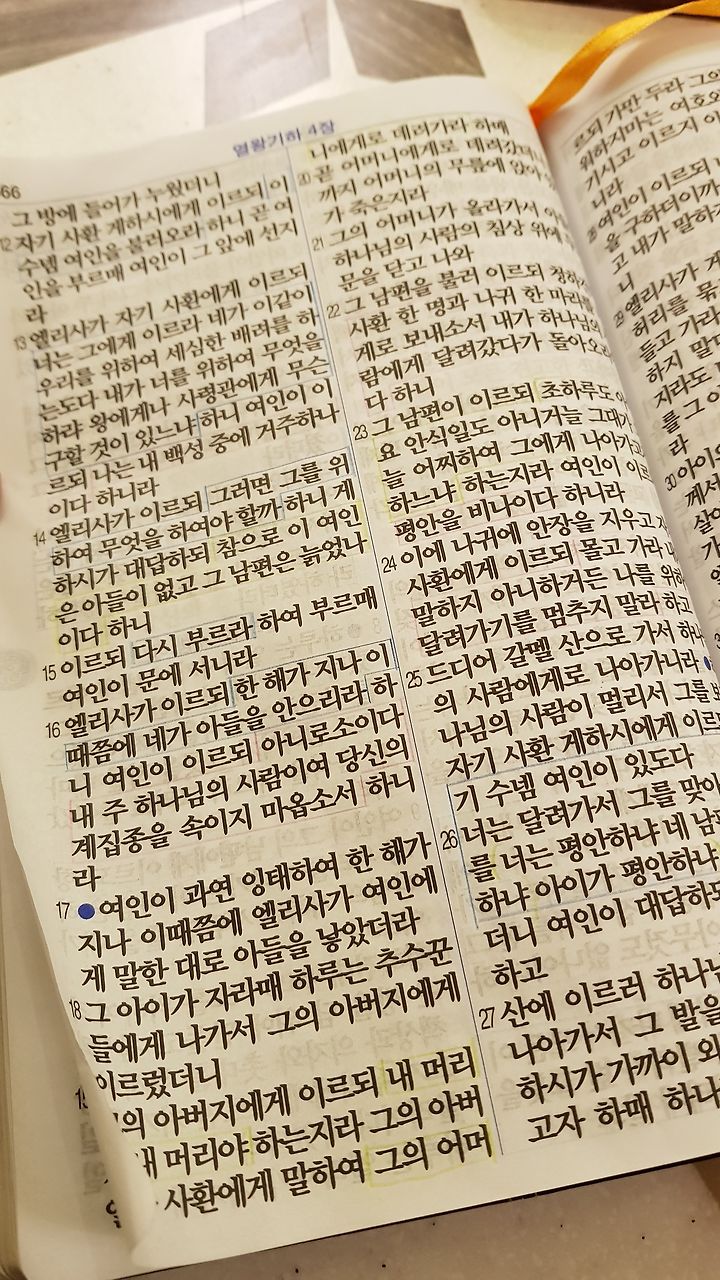 열왕기하 4장
66
그 방에 들어가 누웠더니
12 자기 사환 게하시에게 이르되 이
수넴 여인을 불러오라 하니 곧 여
인을 부르매 여인이 그 앞에 선지
라
13 엘리사가 자기 사환에게 이르되
너는 그에게 이르라 네가 이같이
우리를 위하여 세심한 배려를 하
는도다 내가 너를 위하여 무엇을
하랴 왕에게나 사령관에게 무슨
구할 것이 있느냐 하니 여인이 이
르되 나는 내 백성 중에 거주하나
이다 하니라
14 엘리사가 이르되 그러면 그를 위
하여 무엇을 하여야 할까 하니 게
하시가 대답하되 참으로 이 여인
은 아들이 없고 그 남편은 늙었나
이다 하니
15 이르되 다시 부르라 하여 부르매
여인이 문에 서니라
16 엘리사가 이르되 한 해가 지나 이
때쯤에 네가 아들을 안으리라 하
니 여인이 이르되 아니로소이다
내 주 하나님의 사람이여 당신의
계집종을 속이지 마옵소서 하니
라
17 ●여인이 과연 잉태하여 한 해가
지나 이때쯤에 엘리사가 여인에
게 말한 대로 아들을 낳았더라
18 그 아이가 자라매 하루는 추수꾼
들에게 나가서 그의 아버지에게
이르렀더니
의 아버지에게 이르되 내 머리
내 머리야 하는지라 그의 아버
사환에게 말하여 그의 어머
니에게로 데려가라 하매
20 곧 어머니에게로 데려갔더니
까지 어머니의 무릎에 앉아
가 죽은지라
21 그의 어머니가 올라가서
하나님의 사람의 침상 위에
문을 닫고 나와
22 그 남편을 불러 이르되 청하
사환 한 명과 나귀 한 마리를
게로 보내소서 내가 하나님의
람에게 달려갔다가 돌아오리
다 하니
23 그 남편이 이르되 초하루도
요 안식일도 아니거늘 그대가
늘 어찌하여 그에게 나아가고
하느냐 하는지라 여인이 이르
평안을 비나이다 하니라
24 이에 나귀에 안장을 지우고 자
사환에게 이르되 몰고 가라
말하지 아니하거든 나를 위하
달려가기를 멈추지 말라 하고
25 드디어 갈멜 산으로 가서 하나
의 사람에게로 나아가니라 ●
나님의 사람이 멀리서 그를 보
자기 사환 게하시에게 이르
기 수넴 여인이 있도다
26 너는 달려가서 그를 맞이
를 너는 평안하냐 네 남편
하냐 아이가 평안하냐
더니 여인이 대답하되
하고
27 산에 이르러 하나님
나아가서 그 발을
하시가 가까이 와
고자 하매 하나
르되 가만 두라 그의
위하지마는 여호와
기시고 이르지 아
니라
28 여인이 이르되
을 구하더이까
고 내가 말하
니
29 엘리사가 게
허리를 묶
들고 가라
하지 말
지라도
를 그
라
30 아이의
께서
살아
가